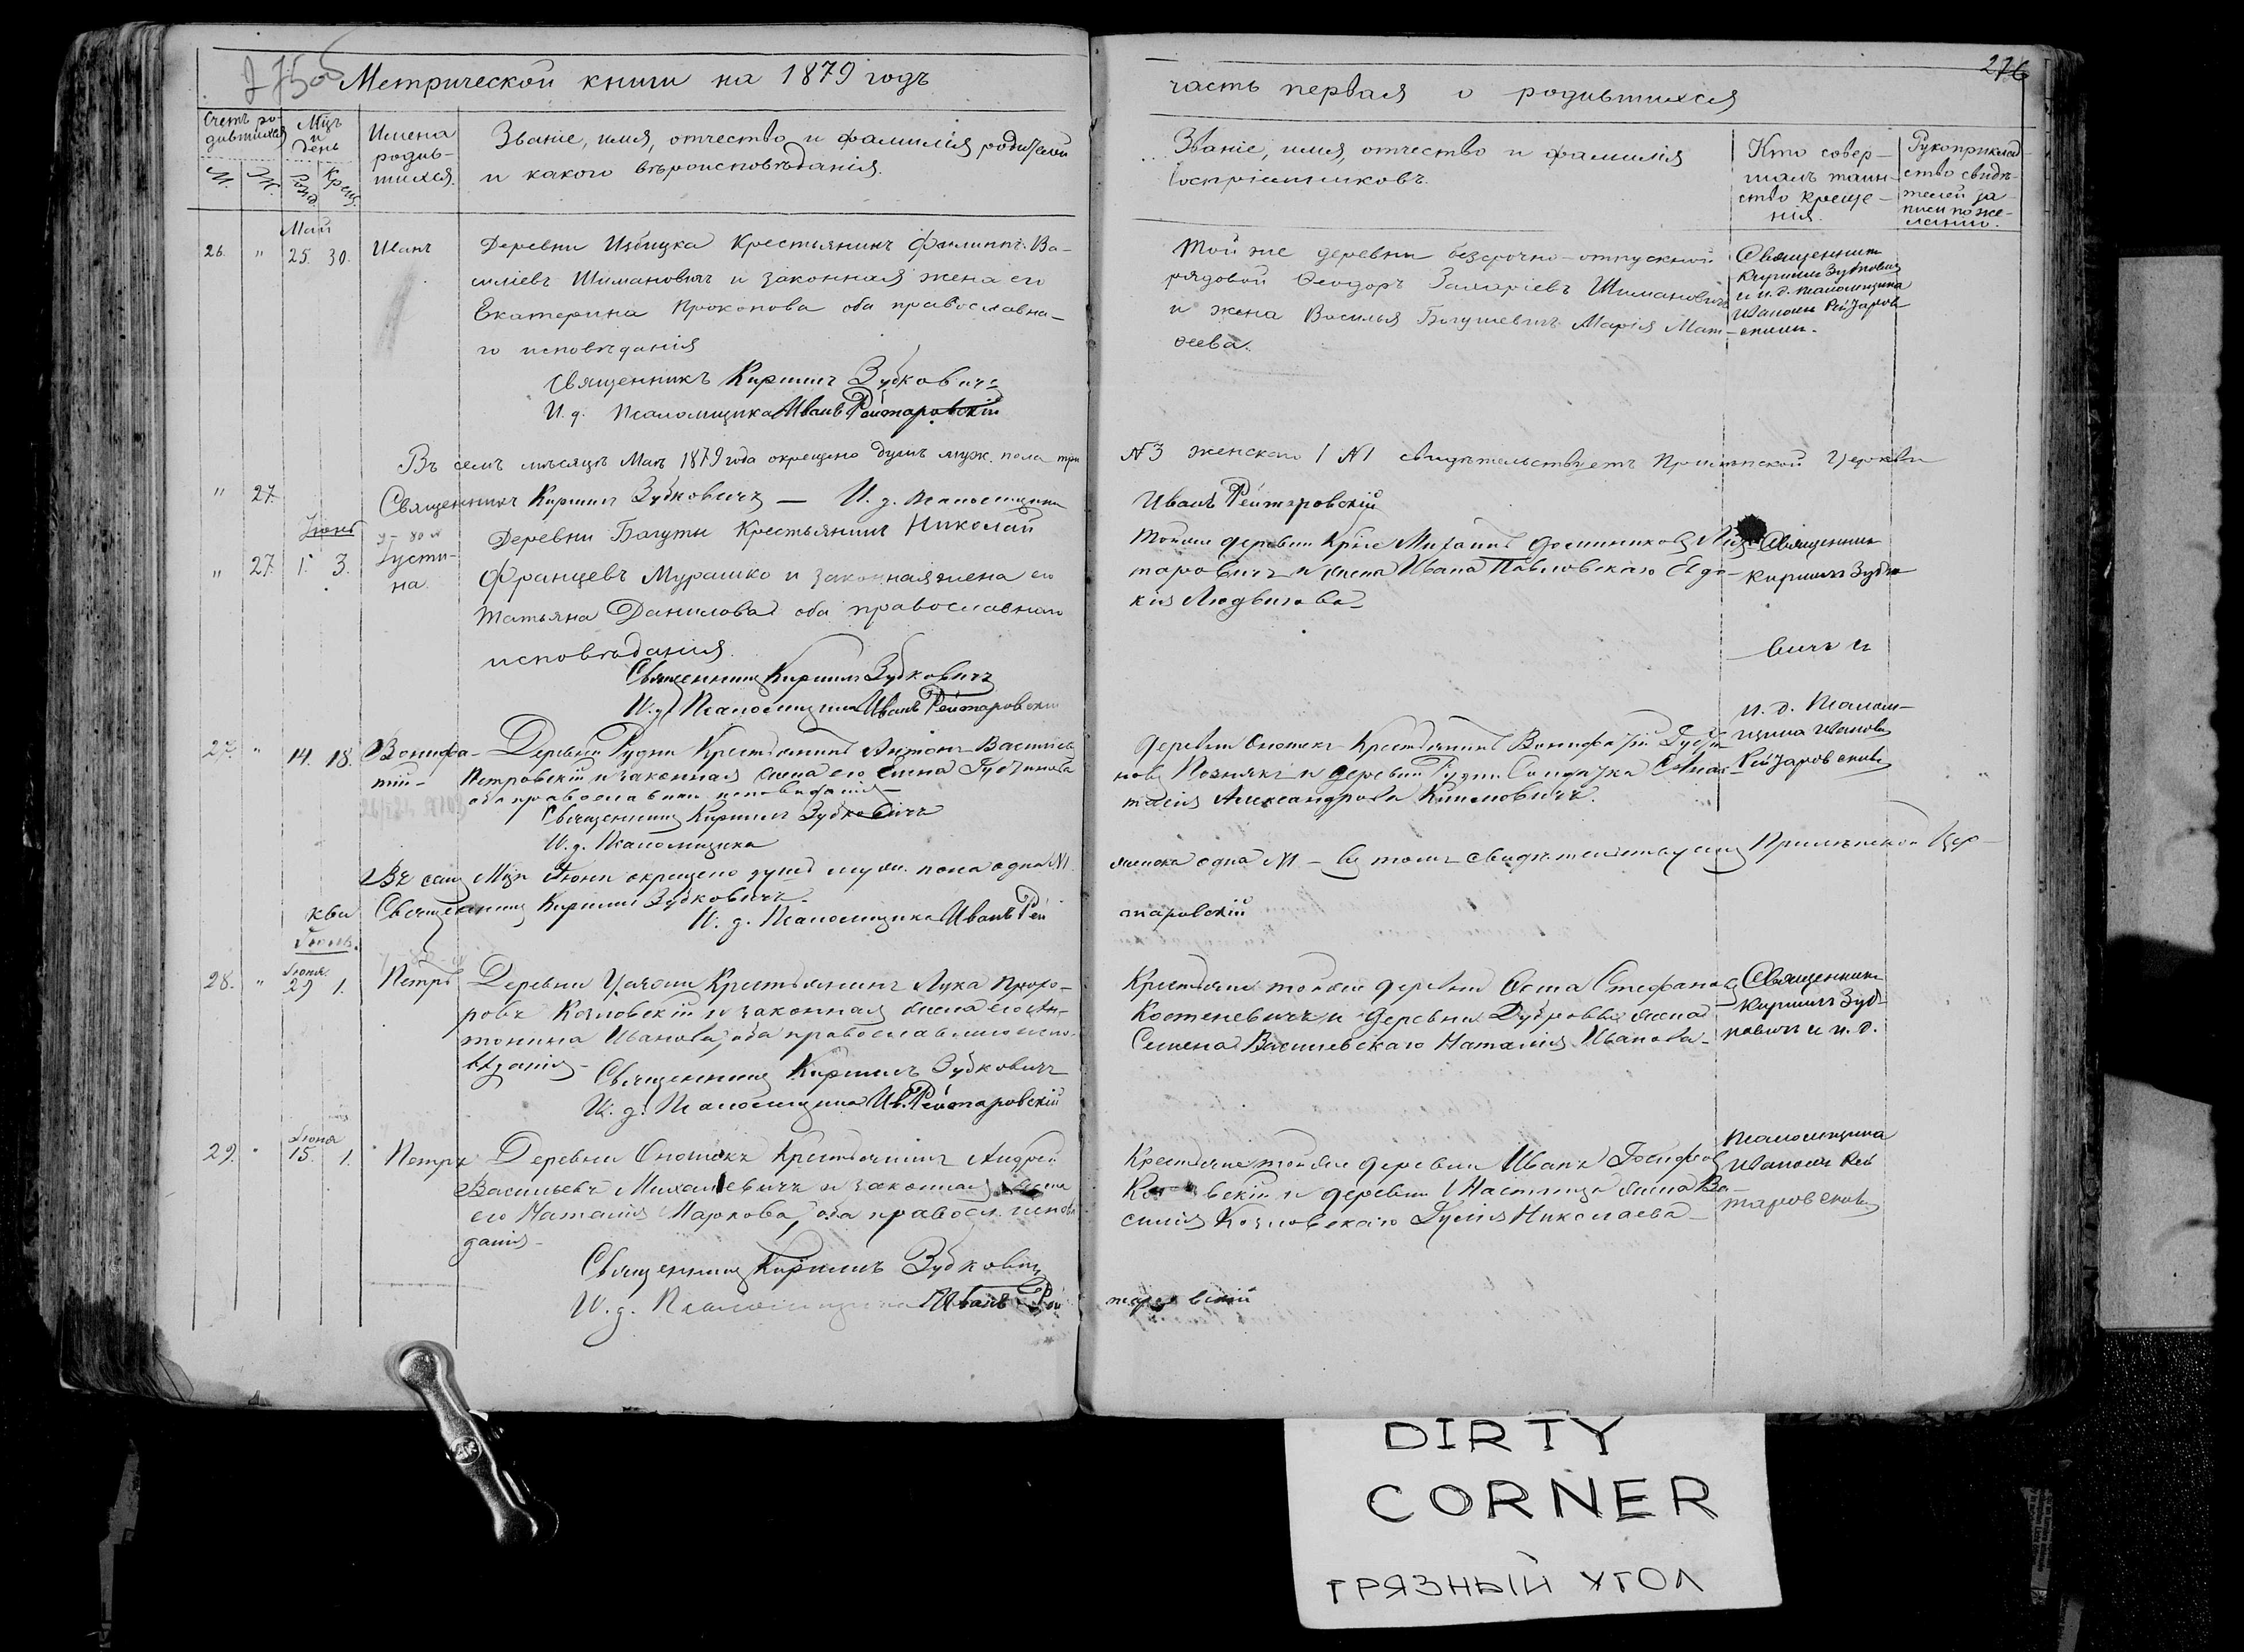 275об Метрической книги на 1879 годъ
Счетъ ро-
дившихся
М. Ж.
Мцъ
и
день
Рожд. Крещ.
Имена
родив-
шихся.
Званіе, имя, отчество и фамилія родителей
и какого вѣроисповѣданія.
Май
26. " 25. 30. Иванъ
Деревни Избицка Крестьянинъ Филиппъ Ва-
силіевъ Шимановичъ и законная жена его
Екатерина Прокопова оба православна-
го исповѣданія
Священникъ Кириллъ Зубковичъ
И. д. Псаломщика Иванъ Рейтаровскій
Въ семъ мѣсяцѣ Маѣ 1879 года окрещено душъ муж. пола три
" 27.
Священникъ Кириллъ Зубковичъ — И. д. Псаломщика
Іюнь
" 27. 1. 3. Густи-
на.
Деревни Багуты Крестьянинъ Николай
Францевъ Мурашко и законная жена его
Татьяна Данилова оба православнаго
исповѣданія.
Священникъ Кириллъ Зубковичъ
И. д. Псаломщика Иванъ Рейтаровскій
27. " 14. 18. Вонифа-
тій-
Деревни Рудни Крестьянинъ Антонъ Васильевъ
Петровскій и законная жена его
оба православнаго исповѣданія
Священникъ Кириллъ Зубковичъ
И. д. Псаломщика
Въ семъ Мцѣ Іюнѣ окрещено душъ муж. пола одна №1
кви Священникъ Кириллъ Зубковичъ.
И. д. Псаломщика Иванъ Рей
Іюль.
Іюня
28. " 29 1. Петръ
Деревни Крестьянинъ Лука Прохо-
ровъ Козловскій и законная жена его Ан-
тонина Иванова, оба православнаго испо-
вѣданія-
Священникъ Кириллъ Зубковичъ
И. д. Псаломщика Ив. Рейтаровскій
Іюня
29. " 15. 1. Петръ
Деревни Крестьянинъ Андрей
Васильевъ Михалевичъ и законная жена
его Наталія Маркова, оба правосл. исповѣ
данія-
Священникъ Кириллъ Зубковичъ
И. д. Псаломщика Иванъ Рей
276
часть первая о родившихся
Званіе, имя, отчество и фамилія
воспріемниковъ.
Кто совер-
шалъ таин-
ство креще-
нія.
Рукоприклад-
ство свидѣ-
телей за-
писи по же-
ланію.
Той же деревни безсрочно-отпускной
рядовой Ѳеодоръ Захаріевъ Шимановичъ
и жена Василья Богушевича Марія Мат-
ѳеева.
Священникъ
Кириллъ Зубковичъ
и и. д. псаломщика
Иваномъ Рейтаров-
скимъ.
№3 женскаго 1 №1 свидѣтельствуетъ Церкви
Иванъ Рейтаровскій
Той же деревни Михаилъ
и жена Ивана Павловскаго Евдо-
кія Людвигова-
Священникъ
Кириллъ Зубко-
вичъ и
и. д. Псалом-
щика Иванъ
Рейтаровскій
деревни Крестьянинъ Вонифатій
и деревни Рудни Солдатка Анас-
тасія Александрова
женска одна №1 - въ томъ свидѣтельствуемъ Цер-
таровскій
Крестьянинъ той же деревни Стефановъ
Костеневичъ и деревни Дубровы жена
Семена Василевскаго Наталія Иванова-
Священникъ
Кириллъ Зуб-
ковичъ и и. д.
Псаломщика
Иваномъ Рей
таровскимъ
Крестьянинъ той же деревни Иванъ
и деревни жена Ва-
силія Козловскаго Николаева-
таровскій
DIRTY
CORNER
ГРЯЗНЫЙ УГОЛ